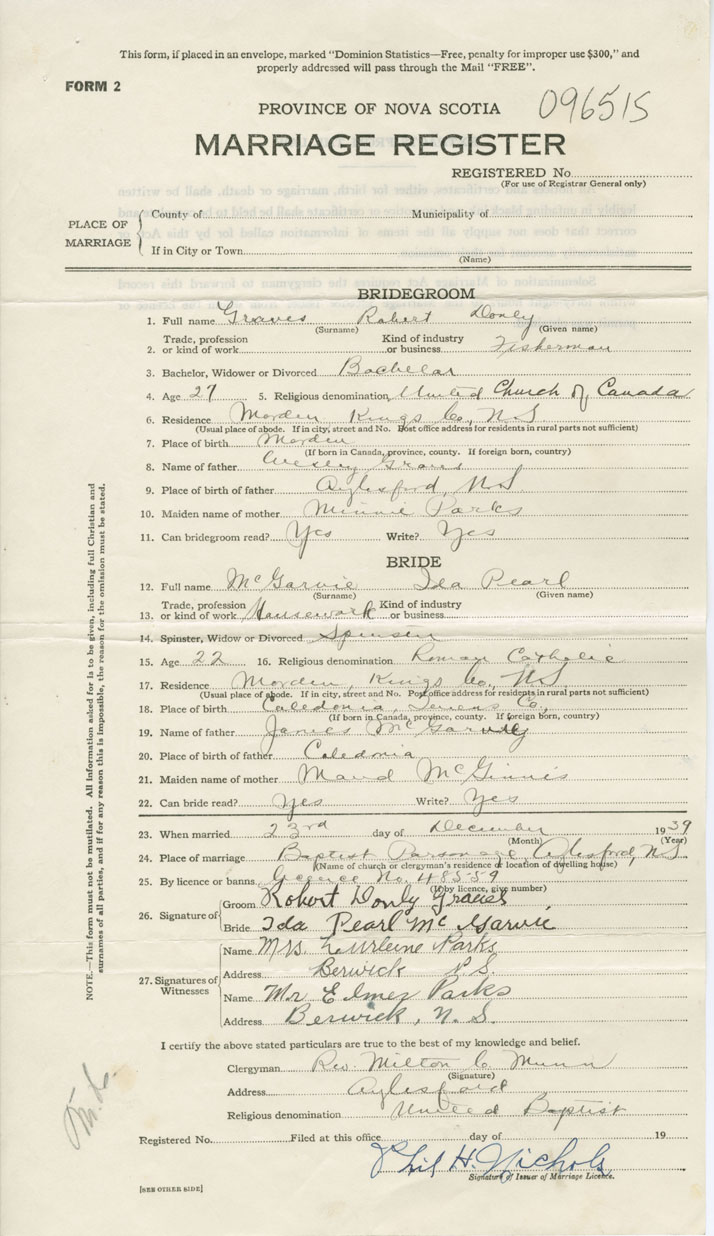 This form, if placed in an envelope, marked "Dominion Statistics—Free, penalty for improper use $300," and
properly addressed will pass through the Mail "FREE".
FORM 2
PROVINCE OF NOVA SCOTIA
096515
MARRIAGE REGISTER
REGISTERED No.
(For use of Registrar General only)
PLACE OF MARRIAGE
County of Municipality of
If in City or Town
(Name)
BRIDEGROOM
1. Full name Graves Robert Donly
(Surname) (Given name)
Trade, profession Kind of industry
2. or kind of work or business Fisherman
3. Bachelor, Widower or Divorced Bachelor
4. Age 27 5. Religious denomination United Church of Canada
6. Residence Morden Kings Co, N.S
(Usual place of abode. If in city, street and No. Post office address for residents in rural parts not sufficient)
7. Place of birth Morden
(If born in Canada, province, county. If foreign born, country)
8. Name of father Wesley Graves
9. Place of birth of father Aylesford, N.S
10. Maiden name of mother Minnie Parks
11. Can bridegroom read? Yes Write? Yes
BRIDE
12. Full name McGarvie Ida Pearl
(Surname) (Given name)
Trade, profession Kind of industry
13. or kind of work Housework or business
14. Spinster, Widow or Divorced Spinster
15. Age 22 16. Religious denomination Roman Catholic
17. Residence Morden, Kings Co, N.S
(Usual place of abode. If in city, street and No. Post office address for residents in rural parts not sufficient)
18. Place of birth Caledonia, Queens Co.,
(If born in Canada, province, county. If foreign born, country)
19. Name of father James McGarvie
20. Place of birth of father Caledonia
21. Maiden name of mother Maud McGinnis
22. Can bride read? Yes Write? Yes
23. When married 23rd day of December 1939
(Month) (Year)
24. Place of marriage Baptist Parsonage, Aylesford, N.S
(Name of church or clergyman's residence or location of dwelling house)
25. By licence or banns License No. 48559
(If by licence, give number)
26. Signature of Groom Robert Donly Graves
Bride Ida Pearl McGarvie
27. Signatures of Witnesses
Name Mrs. Parks
Address Berwick N.S.
Name Mr Elmer Parks
Address Berwick, N.S.
I certify the above stated particulars are true to the best of my knowledge and belief.
Clergyman Rev. Milton C Munn
(Signature)
Address Aylesford
Religious denomination United Baptist
Registered No. Filed at this office day of 19
Phil H. Nichols
Signature of Issuer of Marriage Licence.
[SEE OTHER SIDE]
NOTE.—This form must not be mutilated. All Information asked for is to be given, including full Christian and
surnames of all parties, and if for any reason this is impossible, the reason for the omission must be stated.